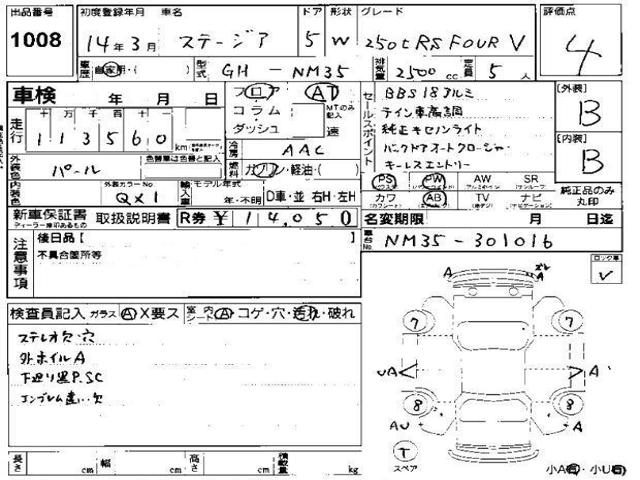 出品番号
1008
初度登録年月 車名 ドア 形状 グレード
14年3月 ステージア 5 W 250t RS FOUR V
評価点
4
車歴 自家用・( ) 型式 GH-NM35 排気量 2500cc 定員 5人
車検 年 月 日
走行 十万 万 千 百 十 一
113560 km
フロア AT
コラム
ダッシュ
MTのみ記入
速
冷房 AAC
燃料 ガソリン・軽油・( )
セールス・ポイント
BBS 18アルミ
テイン車高調
純正キセノンライト
バックドアオートクロージャー
キーレスエントリー
[外装]
B
[内装]
B
外装色 パール 色替車は色替と記入
PS PW AW SR
カワ AB TV ナビ
純正品のみ丸印
内装色 外装カラーNo. QX1 輸入車 モデル年式 年・不明 D車・並 右H・左H
新車保証書 取扱説明書 R券 ¥ 14,050
ディーラー捺印あるもの
名変期限 月 日迄
車台No. NM35-301016
注意事項
後日品【 】
不具合箇所等
ロック車
レ
検査員記入 ガラス A X要ス 室内シート A コゲ・穴・汚れ・破れ
ステレオ欠・穴
外ホイルA
下廻り黒P.SC
エンブレム違い.欠
A ズレ A
7 7
UA A
8 8
AU A
T
スペア
長さ cm 幅 cm 高さ cm 積載量 kg
小A有・小U有